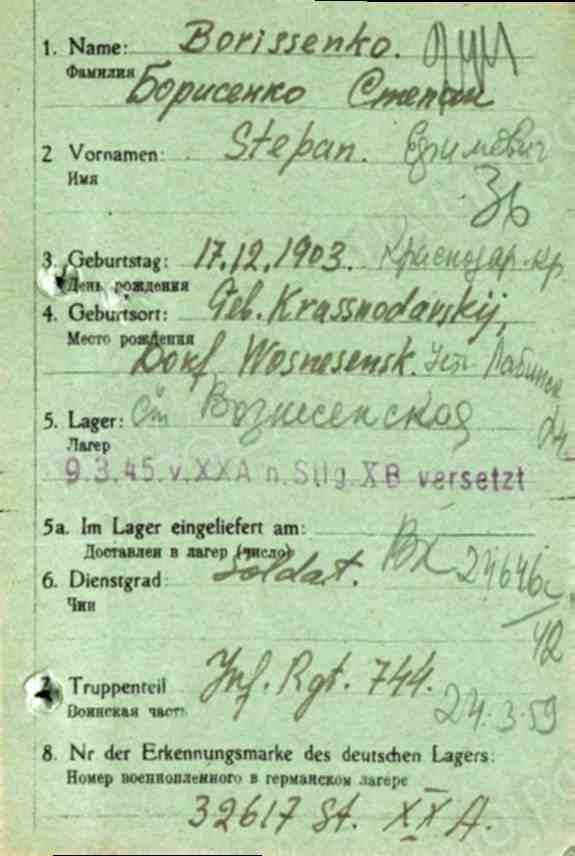 1. Name: Borissenko.
Фамилия
Борисенко Степан
2 Vornamen: Stepan. Ефимович
Имя
3. Geburtstag: 17.12.1903. Краснодар. кр
День рождения
4. Geburtsort: Geb. Krassnodarskij,
Место рождения
Dorf Wosnesensk. Лабинск
5. Lager: Ст Вознесенская
Лагер
9.3.45.v.XXA n.Stlg.XB versetzt
5a. Im Lager eingeliefert am:
Доставлен в лагер (число)
6. Dienstgrad: Soldat. Вх 24646с
Чин
42
7. Truppenteil Inf. Rgt. 744.
Воинская часть
24.3.59
8. Nr der Erkennungsmarke des deutschen Lagers:
Номер военнопленного в германском лагере
32617 St. XX A.